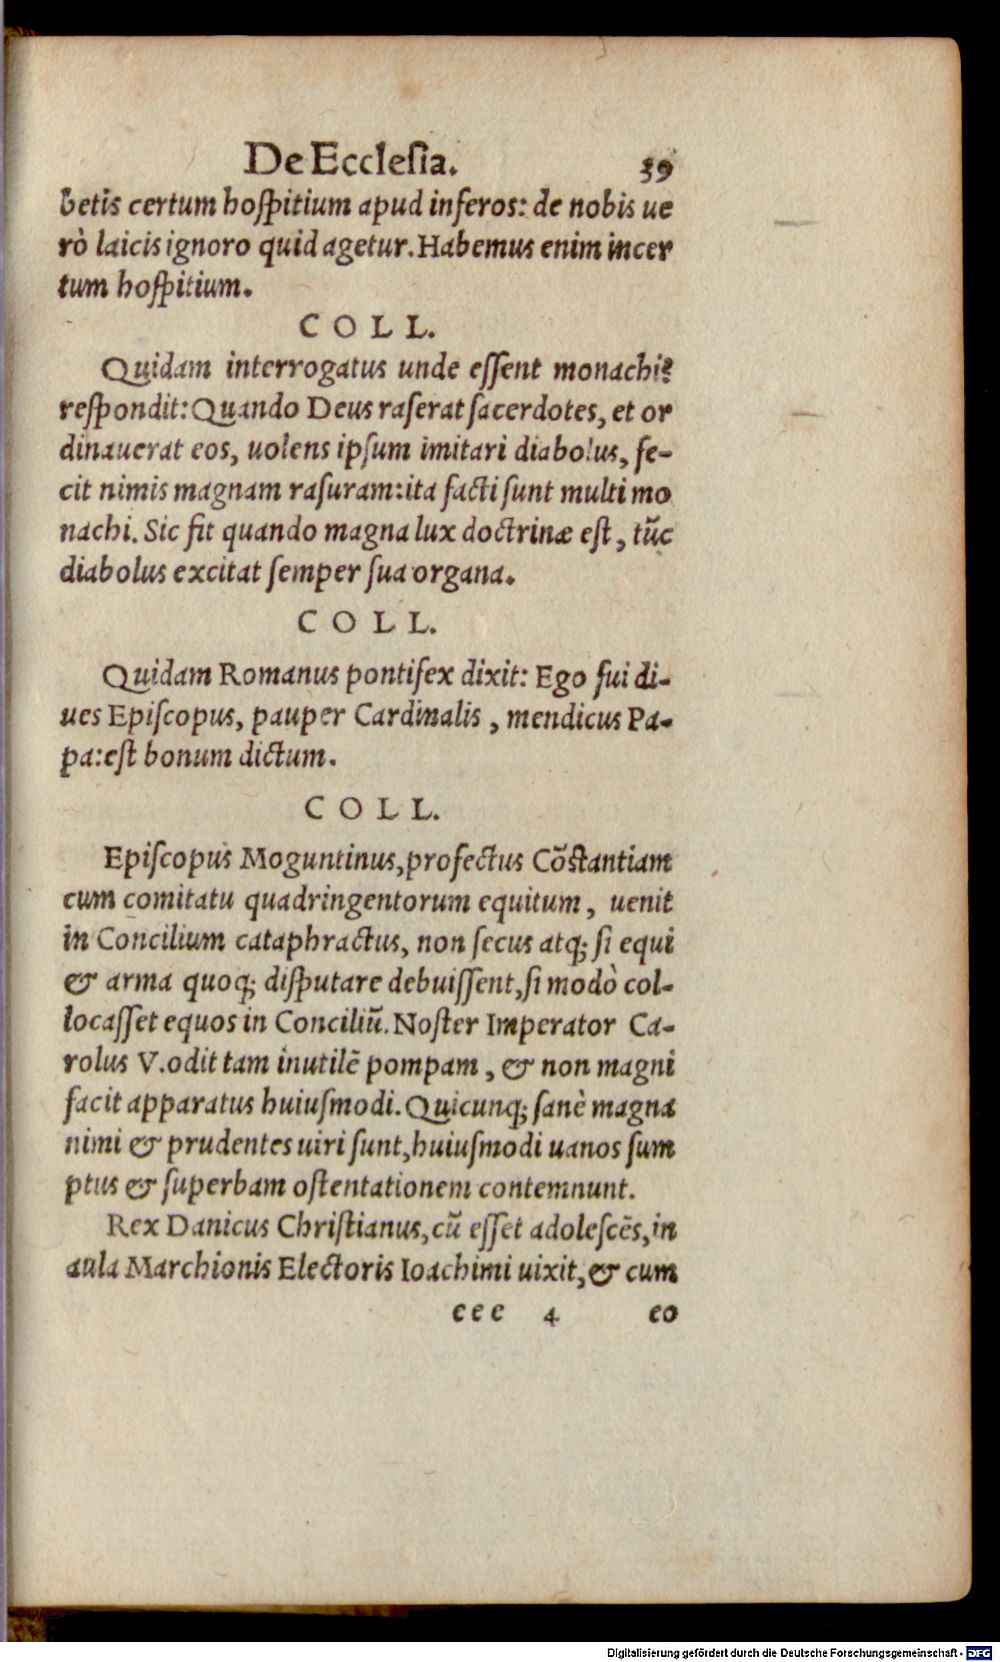 De Ecclesia. 39
betis certum hoſpitium apud inferos: de nobis ue
rò laicis ignoro quid agetur. Habemus enim incer
tum hoſpitium.
C O L L.
Quidam interrogatus unde eſſent monachi?
reſpondit: Quando Deus raſerat ſacerdotes, et or
dinauerat eos, uolens ipſum imitari diabolus, fe-
cit nimis magnam raſuram: ita facti ſunt multi mo
nachi. Sic fit quando magna lux doctrinæ eſt, tũc
diabolus excitat ſemper ſua organa.
C O L L.
Quidam Romanus pontifex dixit: Ego fui di-
ues Epiſcopus, pauper Cardinalis, mendicus Pa-
pa: eſt bonum dictum.
C O L L.
Epiſcopus Moguntinus, profectus Cõſtantiam
cum comitatu quadringentorum equitum, uenit
in Concilium cataphractus, non ſecus atq; ſi equi
& arma quoq; diſputare debuiſſent, ſi modò col-
locaſſet equos in Conciliũ. Noſter Imperator Ca-
rolus V. odit tam inutilẽ pompam, & non magni
facit apparatus huiuſmodi. Quicunq; ſanè magna
nimi & prudentes uiri ſunt, huiuſmodi uanos ſum
ptus & ſuperbam oſtentationem contemnunt.
Rex Danicus Chriſtianus, cũ eſſet adoleſcẽs, in
aula Marchionis Electoris Ioachimi uixit, & cum
eee 4 eo
Digitalisierung gefördert durch die Deutsche Forschungsgemeinschaft - DFG